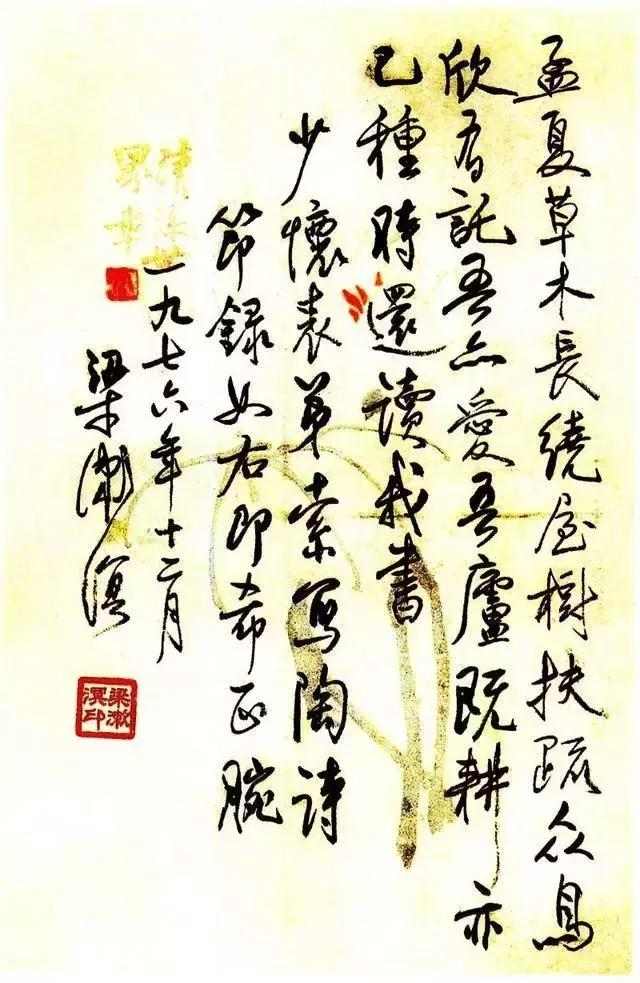 孟夏草木長繞屋樹扶疏众鳥
欣有託吾亦愛吾廬既耕亦
已種時還讀我書
少懷表弟索寫陶詩
節録如右即希正腕
一九七六年十二月
梁漱溟
梁漱溟印